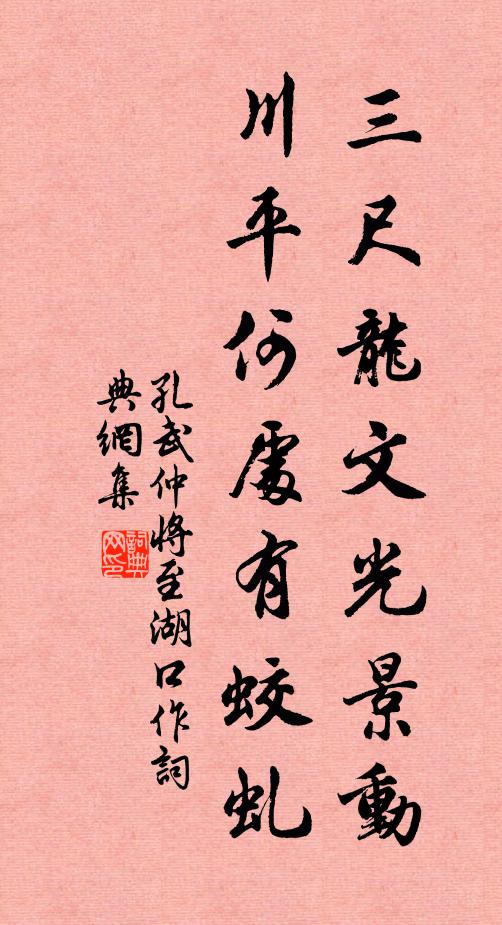 三尺龍文光景動
川平何處有蛟虬
孔武仲將至湖口作詞
典網集
詞典
网印